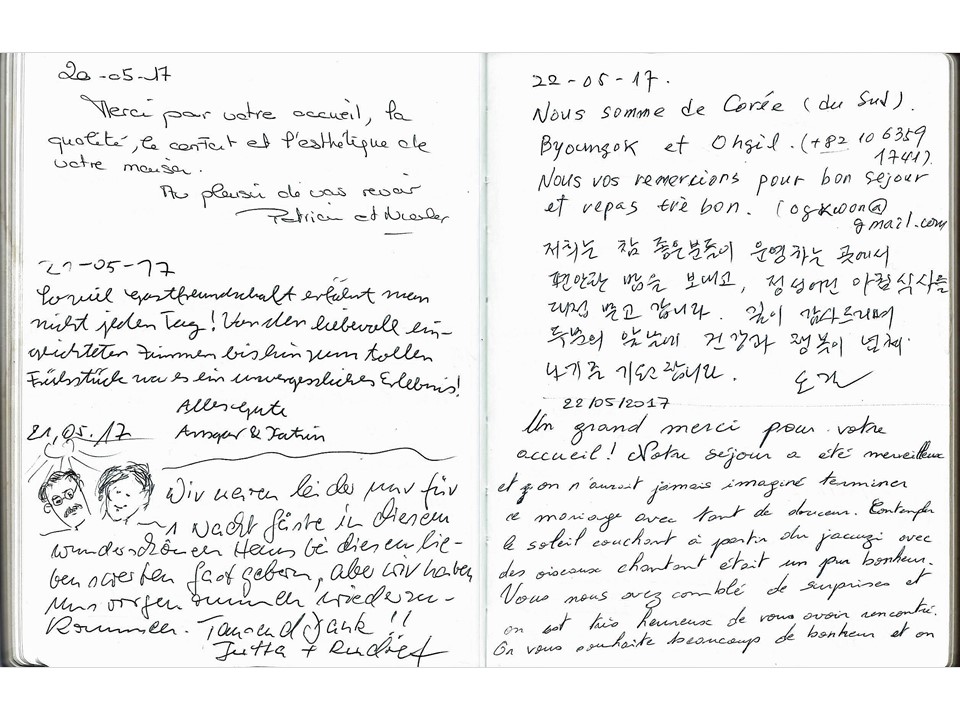 20-05-17
Merci pour votre accueil, la
qualité, le confort et l'esthétique de
votre maison.
Au plaisir de vous revoir
Patricia et
21-05-17
Soviel Gastfreundschaft erfährt man
nicht jeden Tag! Von den liebevoll ein-
gerichteten Zimmern bis hin zum tollen
Frühstück war es ein unvergessliches Erlebnis!
Alles Gute
Ansgar & Katrin
21.05.17
Wir waren leider nur für
1 Nacht Gäste in diesem
wunderschönen Haus bei diesen lie-
benswerten Gastgebern, aber wir haben
uns vorgenommen wiederzu-
kommen. Tausend Dank!!
Jutta +
22-05-17.
Nous somme de Corée (du Sud).
Byoungok et Ohgil. (+82 10 6359
1741).
Nous vos remercions pour bon séjour
et repas trè bon. (ogkwon@
gmail.com
저희는 참 좋은분들이 운영하는 곳에서
편안한 밤을 보내고, 정성어린 아침식사를
대접 받고 갑니다. 깊이 감사드리며
두분의 앞날에 건강과 행복이 넘쳐
나기를 기원합니다.
22/05/2017
Un grand merci pour votre
accueil! Notre séjour a été merveilleux
et on n'aurait jamais imaginé terminer
ce mariage avec tant de douceur. Contempler
le soleil couchant à partir du jacuzi avec
des oiseaux chantant était un pur bonheur.
Vous nous avez comblé de surprises et
on est très heureuse de vous avoir rencontré.
On vous souhaite beaucoup de bonheur et on